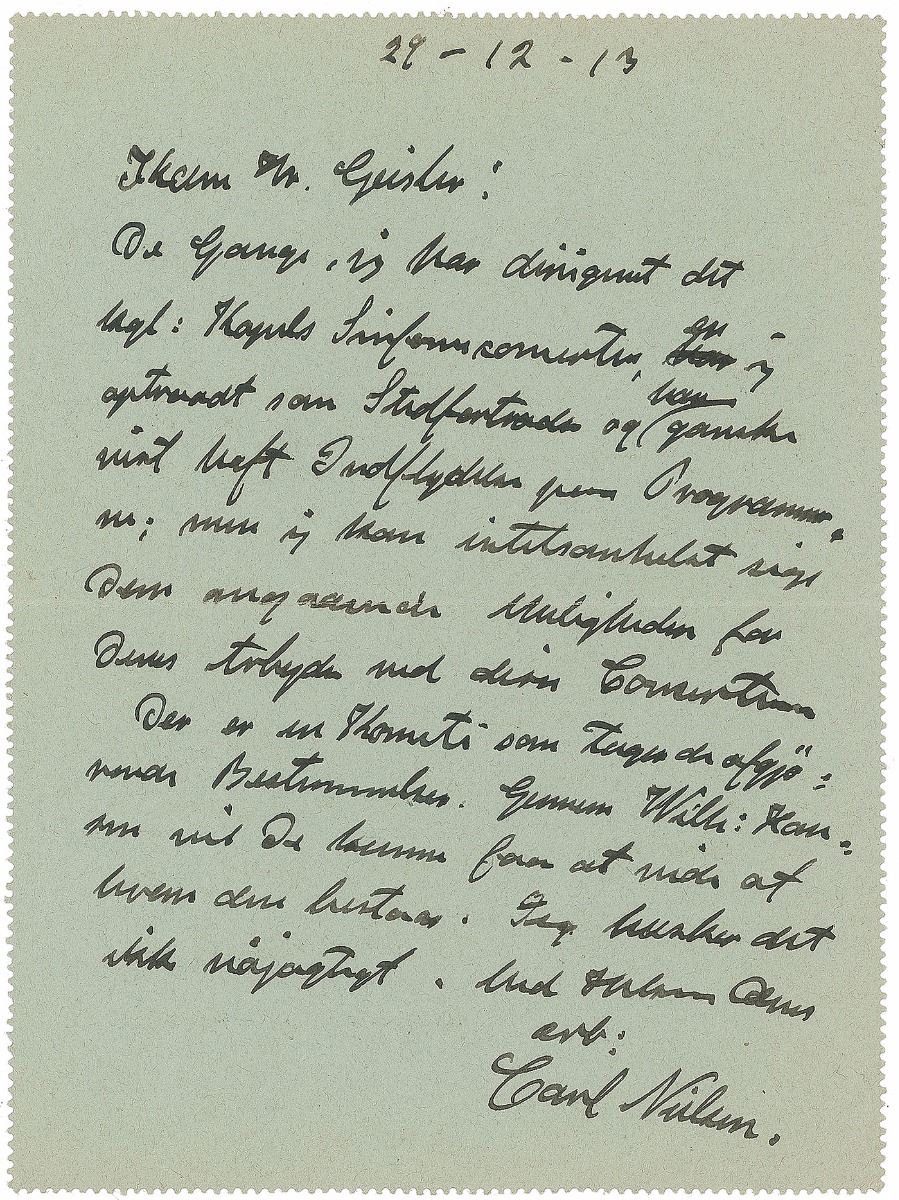 29-12-13
Kære Hr. Geisler!
De Gange, jeg har dirigeret det
kgl: Kapels Sinfoniconcerter, er
har jeg
optraadt som Stedfortræder og har ganske
vist haft Indflydelse paa Programmer-
ne; men jeg kan intetsomhelst sige
Dem angaaende Muligheden for
Deres Arbejde ved disse Concerter
Der er en Komité som tager de afgjö-
rende Bestemmelser. Gennem Wilh: Han-
sen vil De kunne faa at vide af
hvem den bestaar. Jeg husker det
ikke nöjagtigt. Med Hilsen Deres
ærb:
Carl Nielsen.